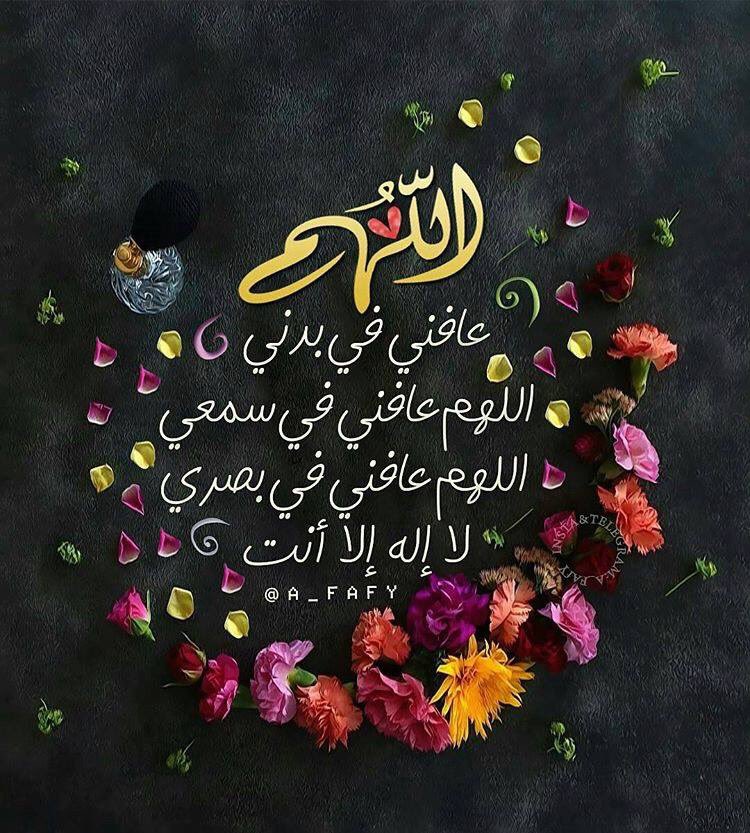 اللّهُم
عافني في بدني
اللهم عافني في سمعي
اللهم عافني في بصري
لا إله إلا أنت
@A_FAFY
INSTA&TELEGRAM:A_FAFY